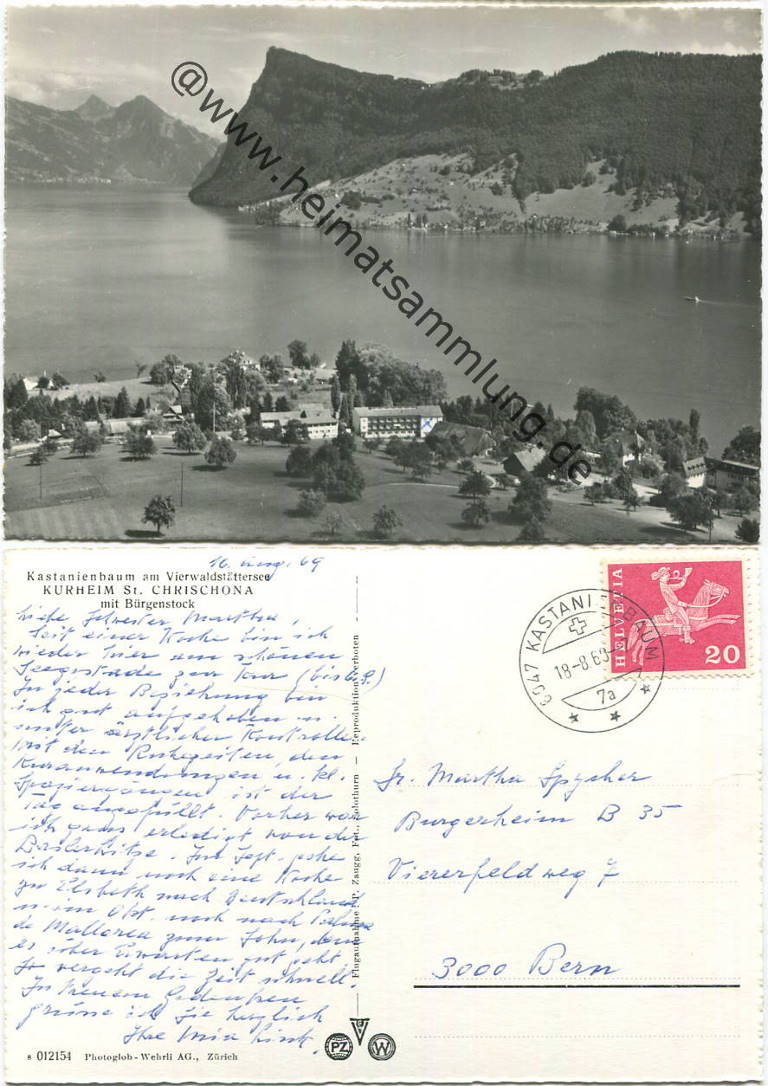 @www.heimatsammlung.de
16. Aug. 69
Kastanienbaum am Vierwaldstättersee
KURHEIM St. CHRISCHONA
mit Bürgenstock
Liebe Schwester Martha,
Seit einer Woche bin ich
wieder hier am schönen
Seegestade zur Kur (bis 6.9.)
In jeder Beziehung bin
ich gut aufgehoben u.
unter ärztlicher Kontrolle.
Mit den Ruhezeiten, den
Kuranwendungen u. kl.
Spaziergängen ist der
Tag angefüllt. Vorher war
ich ganz erledigt von der
Baslerhitze. Im Sept. gehe
ich dann noch eine Woche
zu Elsbeth nach Deutschland
u. im Okt. noch nach Palma
de Mallorca zum Sohn, dem
es über Erwarten gut geht.
So vergeht die Zeit schnell.
In treuem Gedenken
grüsse ich Sie herzlich
Ihre
s 012154 Photoglob-Wehrli AG., Zürich
Flugaufnahme P. Zaugg, Solothurn — Reproduktion verboten
PZ
W
6047 KASTANIENBAUM
18-8.69
7a
HELVETIA
20
Sr. Martha Spycher
Burgerheim B 35
Viererfeldweg 7
3000 Bern